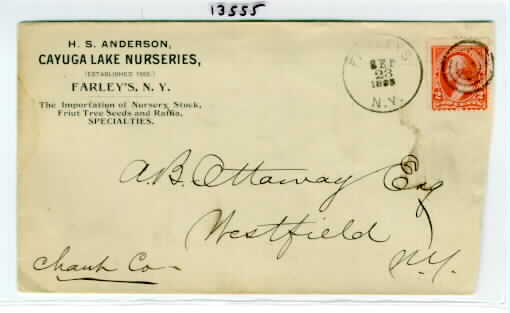 13555
H. S. ANDERSON,
CAYUGA LAKE NURSERIES,
(ESTABLISHED 1855.)
FARLEY'S, N. Y.
The Importation of Nursery Stock,
Friut Tree Seeds and Raffia,
SPECIALTIES.
FARLEYS
SEP
23
N.Y.
A.B. Ottaway Esq
Westfield
Chaut Co
N.Y.